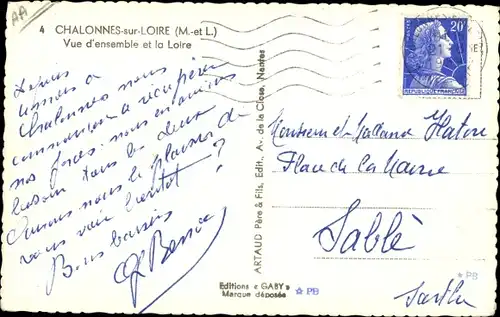 AA
4 CHALONNES-sur-LOIRE (M.-et L.)
Vue d'ensemble et la Loire
Depuis
à
Chalonnes nous
commençons à récupérer
nos forces. nous en avions
besoin tous les deux
Aurons nous le plaisir de
vous voir bientôt ?
Bons baisers
ARTAUD Père & Fils, Edit., Av. de la Close, Nantes
Editions « GABY »
Marque déposée
☆ PB
20F
REPUBLIQUE FRANÇAISE
Monsieur et Madame
Place de la Mairie
Sablé
* PB
Sarthe